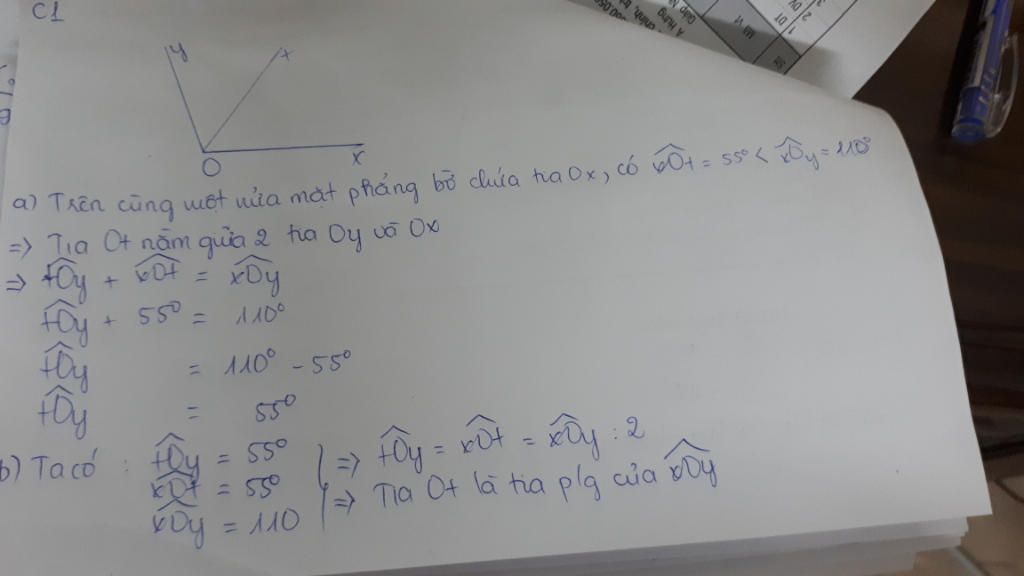 C1
y
t
O
x
a) Trên cùng một nửa mặt phẳng bờ chứa tia Ox, có xÔt = 55° < xÔy = 110°
=> Tia Ot nằm giữa 2 tia Oy và Ox
=> tÔy + xÔt = xÔy
tÔy + 55° = 110°
tÔy = 110° - 55°
tÔy = 55°
b) Ta có : tÔy = 55°
xÔt = 55°
xÔy = 110
=> tÔy = xÔt = xÔy : 2
=> Tia Ot là tia p/g của xÔy